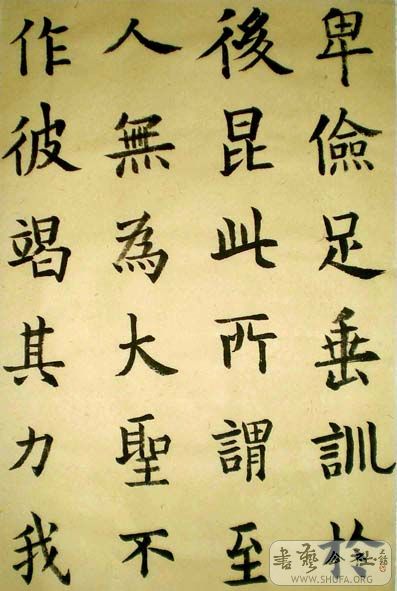 卑儉足垂訓於
後昆此所謂至
人無為大聖不
作彼竭其力我
書藝公社
WWW.SHUFA.ORG